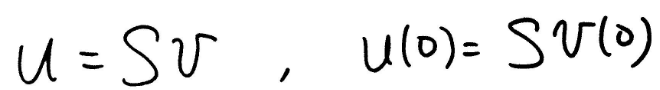 u = Sv , u(0) = Sv(0)